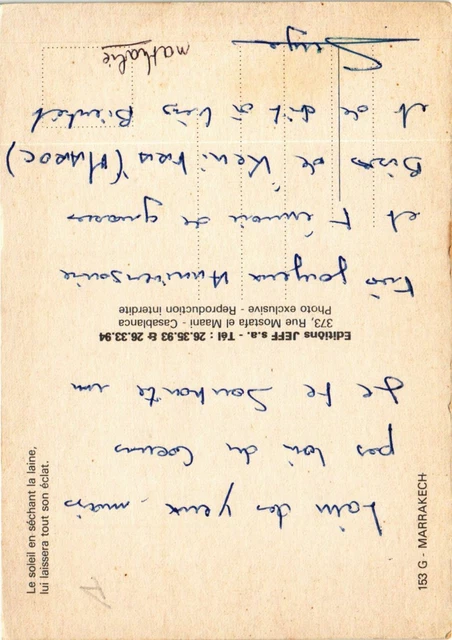 Loin des yeux, mais
pas loin du Coeurs
Je te Souhaite un
Editiòns JEFF s.a. - Tél : 26.35.93 & 26.33.94
373, Rue Mostafa el Maani - Casablanca
Photo exclusive - Reproduction interdite
très joyeux Anniversaire
et T'envoie de
de Kenitra (Maroc)
et de dit à très Bientôt
Serge
nathalie
Le soleil en séchant la laine,
lui laissera tout son éclat.
153 G - MARRAKECH